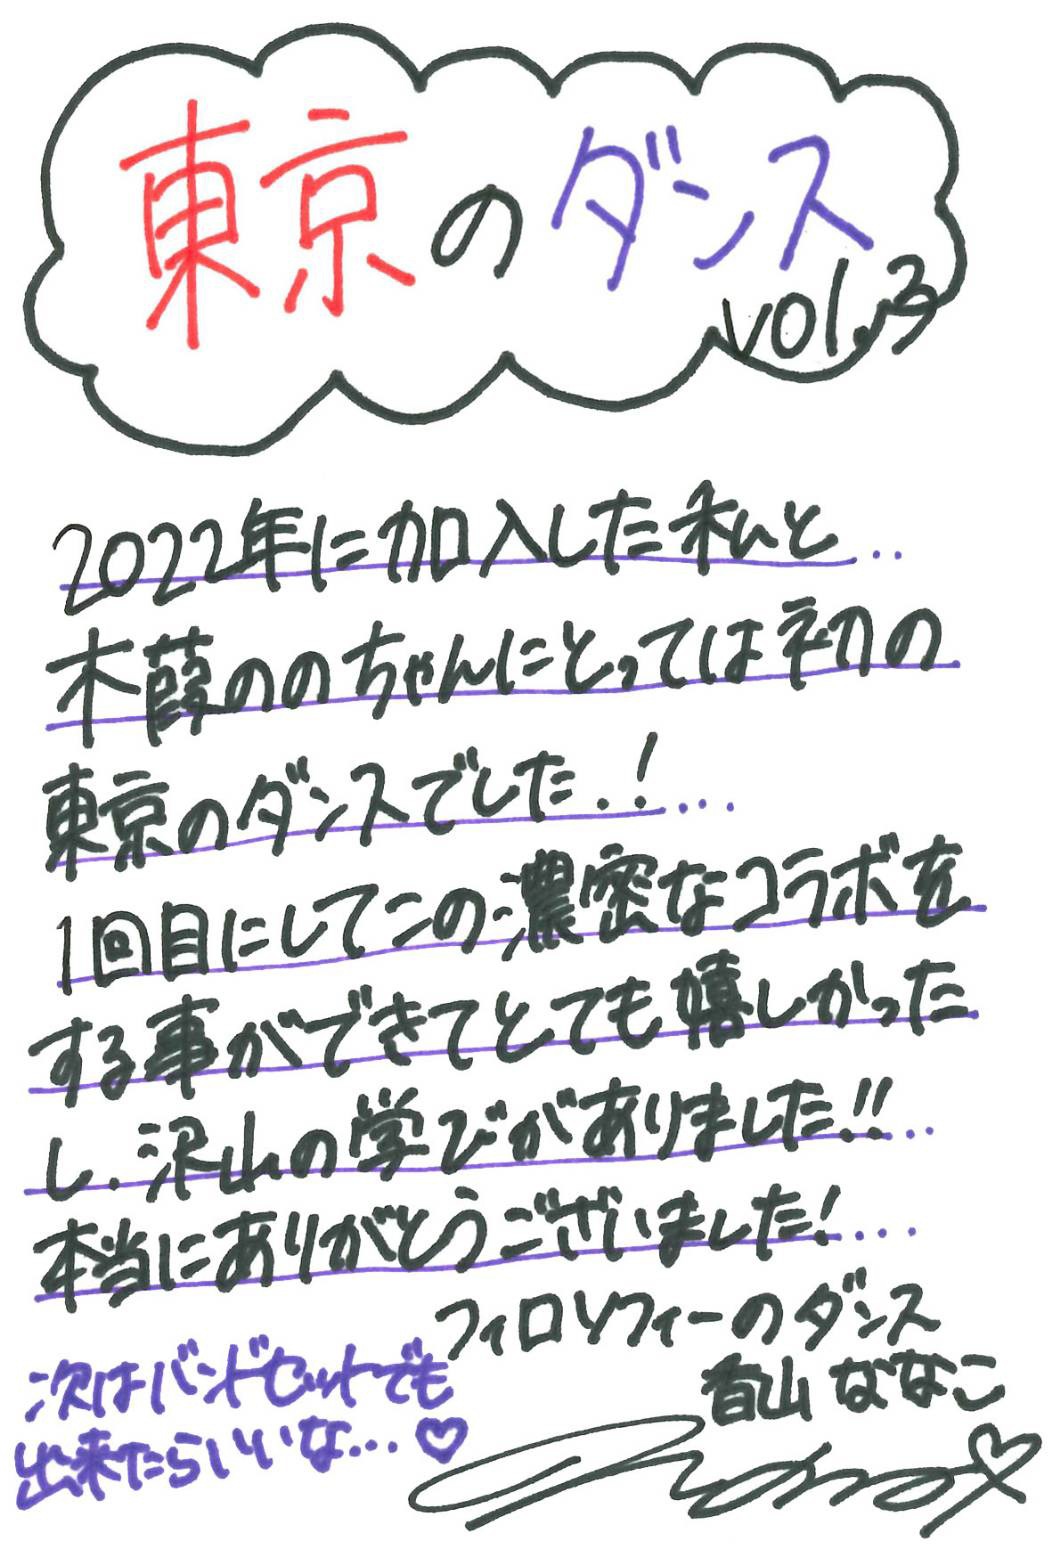 東京のダンス
vol.3
2022年に加入した私と...
木葭ののちゃんにとっては初の
東京のダンスでした.!...
1回目にしてこの濃密なコラボを
する事ができてとても嬉しかった
し、沢山の学びがありました!!...
本当にありがとうございました!....
フィロソフィーのダンス
香山ななこ
次はバンドセットでも
出来たらいいな...♡